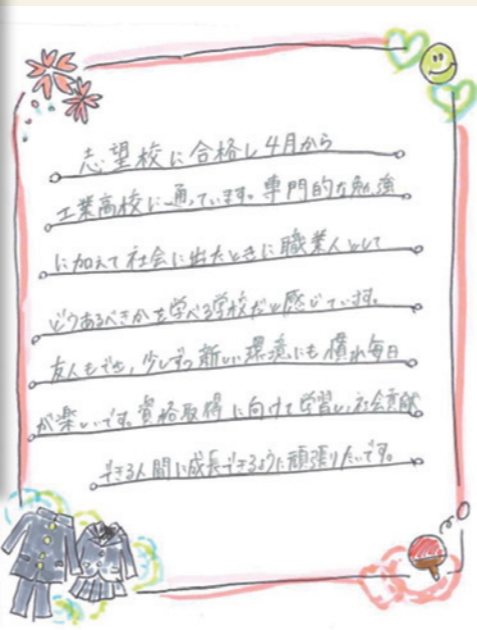 志望校に合格し4月から
工業高校に通っています。専門的な勉強
に加えて社会に出たときに職業人として
どうあるべきかを学べる学校だと感じています。
友人もでき、少しずつ新しい環境にも慣れ毎日
が楽しいです。資格取得に向けて学習し、社会貢献
できる人間に成長できるように頑張りたいです。